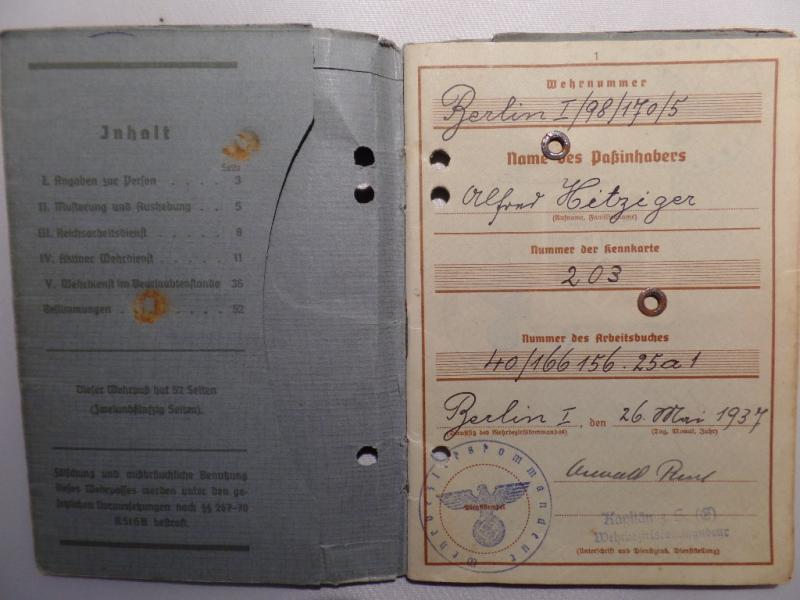 Inhalt
Seite
I. Angaben zur Person . . . . . 3
II. Musterung und Aushebung . . 5
III. Reichsarbeitsdienst . . . . . 8
IV. Aktiver Wehrdienst . . . . . 11
V. Wehrdienst im Beurlaubtenstande 36
Bestimmungen . . . . . 52
Dieser Wehrpaß hat 52 Seiten
(Zweiundfünfzig Seiten).
Fälschung und mißbräuchliche Benutzung
dieses Wehrpasses werden unter den ge-
setzlichen Voraussetzungen nach §§ 267-70
RStGB bestraft.
1
Wehrnummer
Berlin I/98/170/5
Name des Paßinhabers
Alfred Hitziger
(Rufname, Familienname)
Nummer der Kennkarte
203
Nummer des Arbeitsbuches
40/166 156.25a1
Berlin I, den 26. Mai 1937
(Dienstsitz des Wehrbezirkskommandos) (Tag, Monat, Jahr)
Wehrbezirkskommandeur
Dienststempel
Kapitän z. S. (E)
Wehrbezirkskommandeur
(Unterschrift und Dienstgrad, Dienststellung)